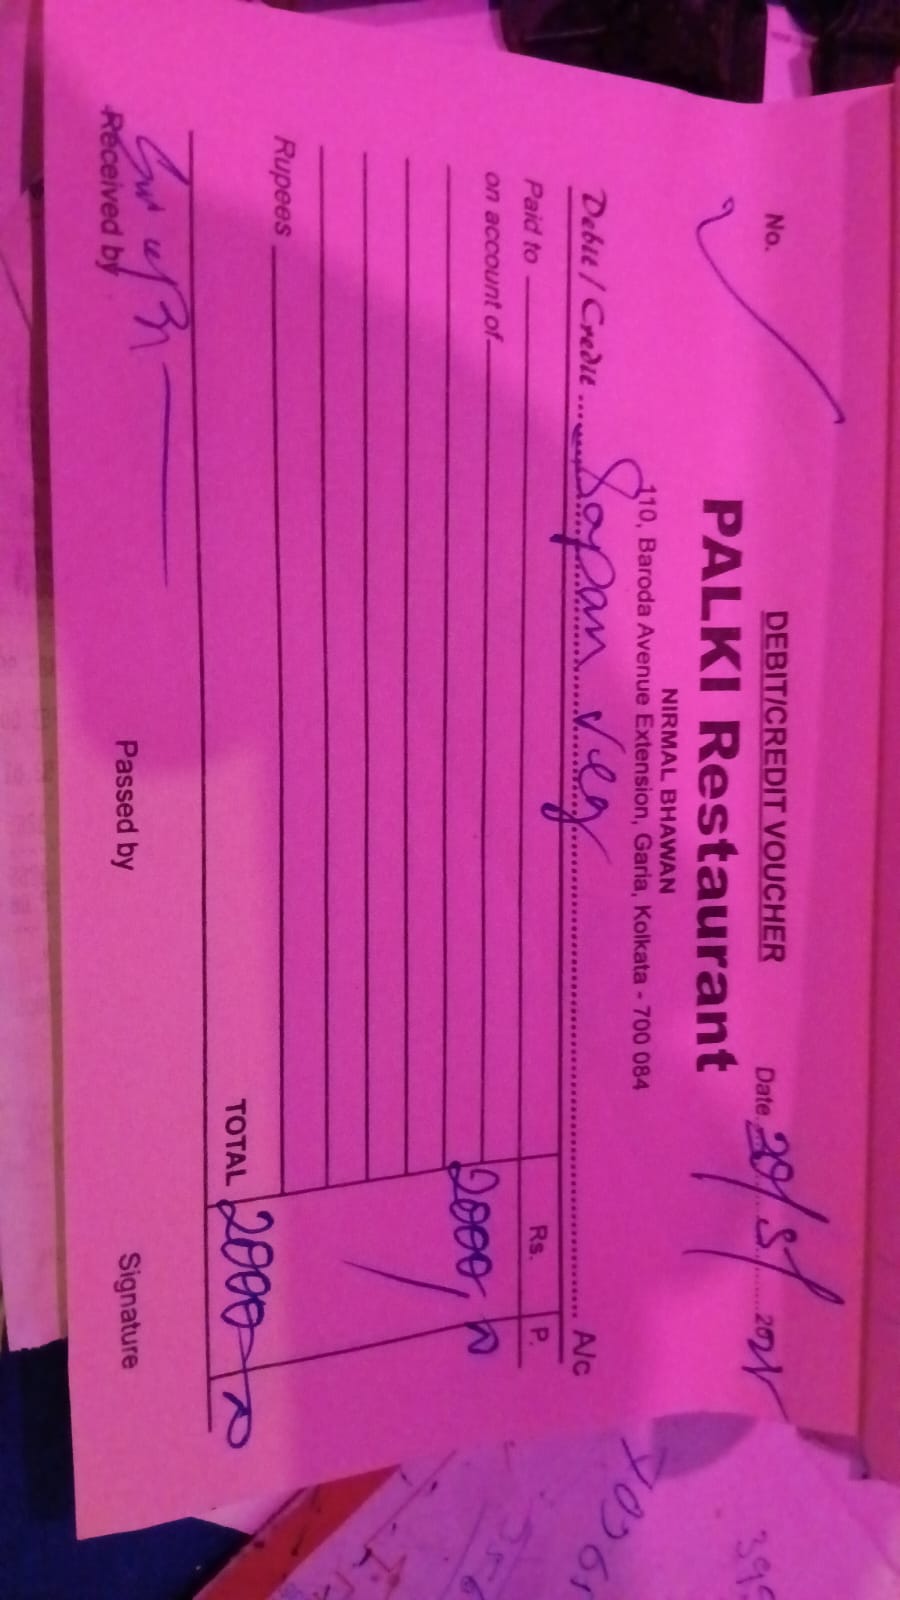 DEBIT/CREDIT VOUCHER
No. Date 29/5/
PALKI Restaurant
NIRMAL BHAWAN
110, Baroda Avenue Extension, Garia, Kolkata - 700 084
Debit / Credit Sopan veg A/c
Paid to Rs. P.
on account of 2000,
Rupees
TOTAL 2000
Received by Passed by Signature